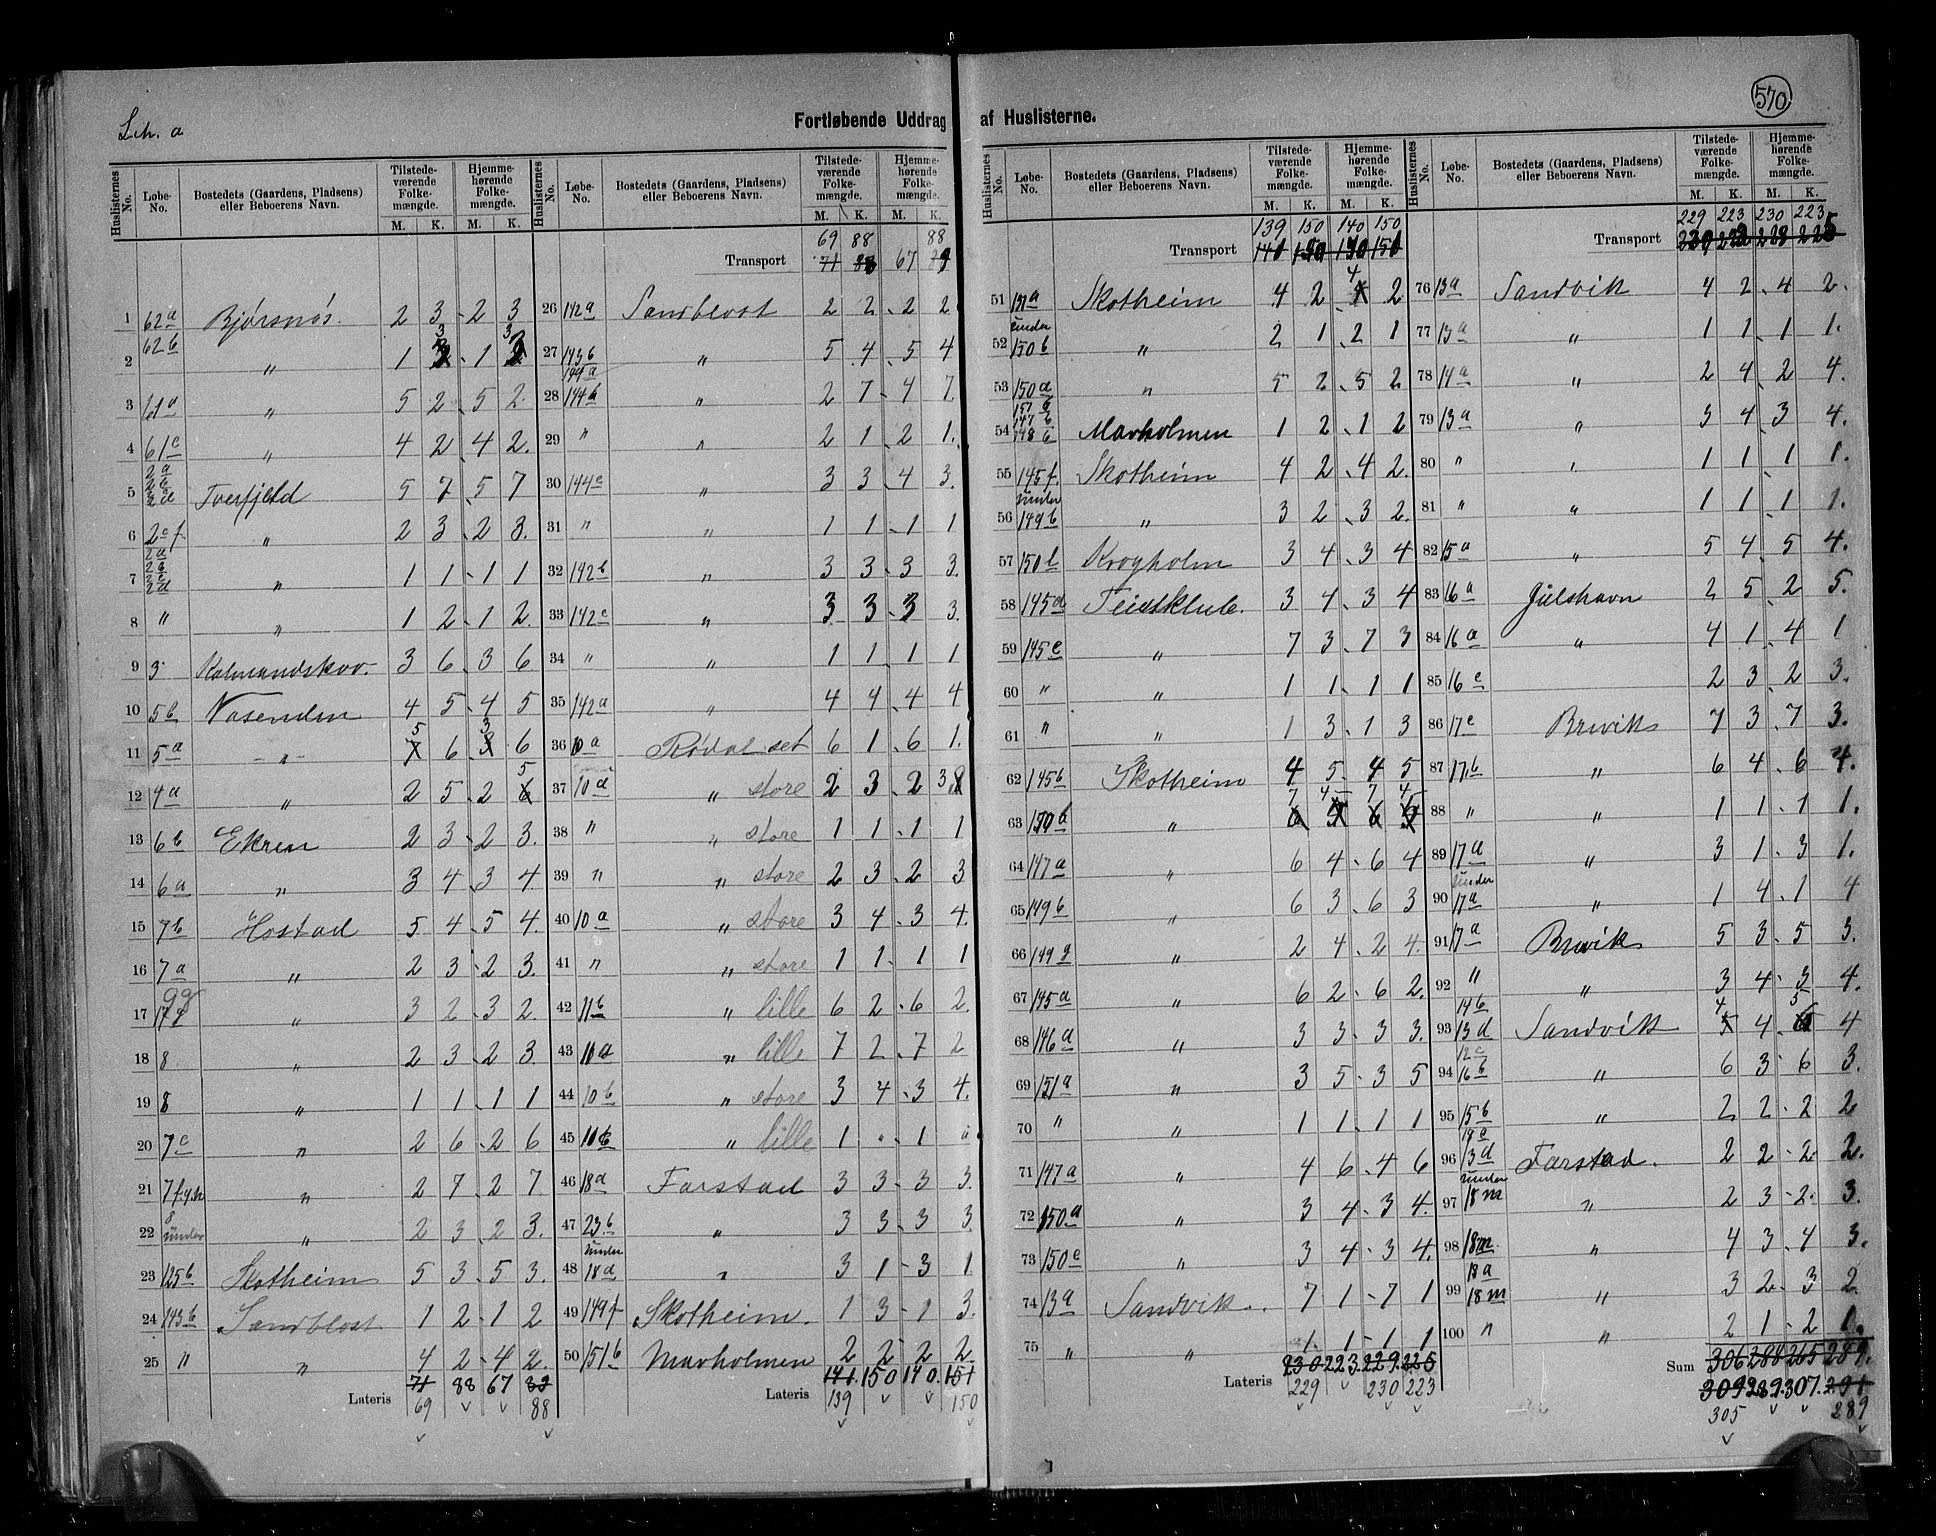 Lit. a
570
Fortløbende Uddrag af Huslisterne.
Huslisternes No. Løbe-No. Bostedets (Gaardens, Pladsens) eller Beboerens Navn. Tilstede-værende Folke-mængde. M. K. Hjemme-hørende Folke-mængde. M. K.
1 62a Bjørsnøs. 2 3 2 3
2 62b " 1 3 1 3
3 61a " 5 2 5 2
4 61c " 4 2 4 2
5 Tverfjeld 5 7 5 7
6 2cf " 2 3 2 3
7 2a 2b 2c 2d " 1 1 1 1
8 " " 1 2 1 2
9 3 Kalmandskov 3 6 3 6
10 5b Nasenden 4 5 4 5
11 5a " 5 6 3 6
12 4a " 2 5 2 5
13 6b Ekren 2 3 2 3
14 6a " 3 4 3 4
15 7b Hostad 5 4 5 4
16 7a " 2 3 2 3
17 " 3 2 3 2
18 8 " 2 3 2 3
19 8 " 1 1 1 1
20 7c " 2 6 2 6
21 7f.g.h " 2 7 2 7
22 8 under " 2 3 2 3
23 125b Skotheim 5 3 5 3
24 143b Sandblost 1 2 1 2
25 " " 4 2 4 2
Lateris 71 88 67 89
69 88
Huslisternes No. Løbe-No. Bostedets (Gaardens, Pladsens) eller Beboerens Navn. Tilstede-værende Folke-mængde. M. K. Hjemme-hørende Folke-mængde. M. K.
69 88 88
Transport 71 88 67 89
26 142a Sandblost 2 2 2 2
27 143b " 5 4 5 4
28 144a 144b " 2 7 4 7
29 " " 2 1 2 1
30 144c " 3 3 4 3
31 " " 1 1 1 1
32 142b " 3 3 3 3
33 142c " 3 3 3 3
34 " " 1 1 1 1
35 142a " 4 4 4 4
36 10a Rødal set 6 1 6 1
37 10d " store 2 3 2 3
38 " " store 1 1 1 1
39 " " store 2 3 2 3
40 10a " store 3 4 3 4
41 " " store 1 1 1 1
42 11b " lille 6 2 6 2
43 " lille 7 2 7 2
44 10b " store 3 4 3 4
45 " lille 1 " 1 "
46 18d Farstad 3 3 3 3
47 23b " 3 3 3 3
48 under 18d " 3 1 3 1
49 149f Skotheim 1 3 1 3
50 151b Mavholmen 2 2 2 2
Lateris 141 150 140 151
139 150
Huslisternes No. Løbe-No. Bostedets (Gaardens, Pladsens) eller Beboerens Navn. Tilstede-værende Folke-mængde. M. K. Hjemme-hørende Folke-mængde. M. K.
139 150 140 150
Transport
51 Skotheim 4 2 4 2
52 under 150b " 2 1 2 1
53 150d " 5 2 5 2
54 151b 147b 148b Mavholmen 1 2 1 2
55 145f. Skotheim 4 2 4 2
56 under 149b " 3 2 3 2
57 150b Krogholm 3 4 3 4
58 145d Teistklub. 3 4 3 4
59 145e " 7 3 7 3
60 " " 1 1 1 1
61 " " 1 3 1 3
62 145b Skotheim 4 5 4 5
63 " 7 4 7 4
64 147a " 6 4 6 4
65 149b " 6 3 6 3
66 149g " 2 4 2 4
67 145a " 6 2 6 2
68 146a " 3 3 3 3
69 151a " 3 5 3 5
70 " " 1 1 1 1
71 147a " 4 6 4 6
72 150a " 3 4 3 4
73 150c " 3 4 3 4
74 13a Sandvik 7 1 7 1
75 " " 1 1 1 1
Lateris 230 223 229 225
229 230 223
Huslisternes No. Løbe-No. Bostedets (Gaardens, Pladsens) eller Beboerens Navn. Tilstede-værende Folke-mængde. M. K. Hjemme-hørende Folke-mængde. M. K.
229 223 230 223
Transport
76 13a Sandvik 4 2 4 2
77 13a " 1 1 1 1
78 14a " 2 4 2 4
79 13a " 3 4 3 4
80 " " 1 1 1 1
81 " " 1 1 1 1
82 15a " 5 4 5 4
83 16a Julshavn 2 5 2 5
84 16a " 4 1 4 1
85 16c 2 3 2 3
86 17c Brevik 7 3 7 3
87 17b " 6 4 6 4
88 " " 1 1 1 1
89 17a " 3 1 3 1
90 under 17a " 1 4 1 4
91 17a Brevik 5 3 5 3
92 " " 3 4 3 4
93 14b 13d Sandvik 4 4 5 4
94 12c 16b " 6 3 6 3
95 15b " 2 2 2 2
96 19a 13d Farstad. 2 2 2 2
97 under 18m " 2 3 2 3
98 18m " 4 3 4 3
99 18a 18m " 3 2 3 2
100 " " 2 1 2 1
Sum 306 288 265 289
309 289 307 291
305 289